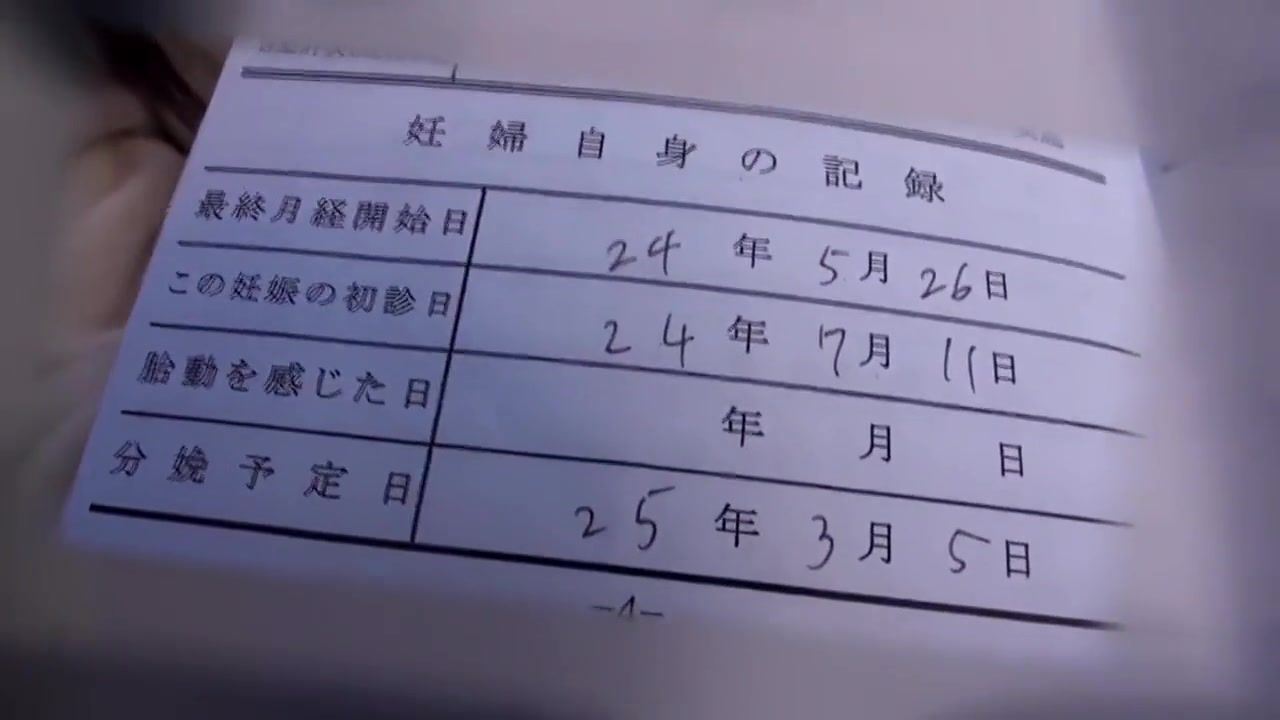 妊婦自身の記録
最終月経開始日 24年5月26日
この妊娠の初診日 24年7月11日
胎動を感じた日 年 月 日
分娩予定日 25年3月5日
—4—